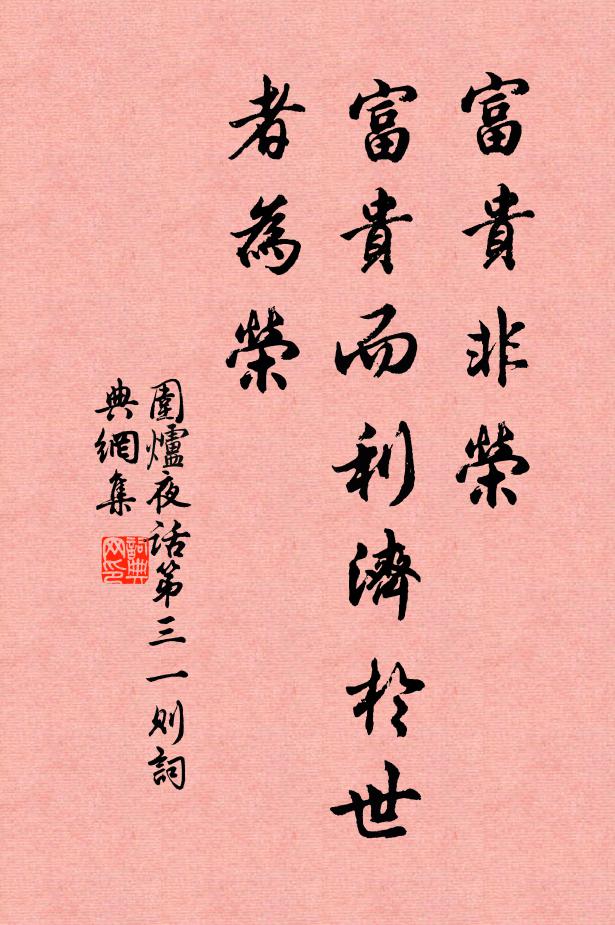 富貴非榮
富貴而利濟於世
者為榮
圍爐夜话第三一则詞
典網集
詞典
网印